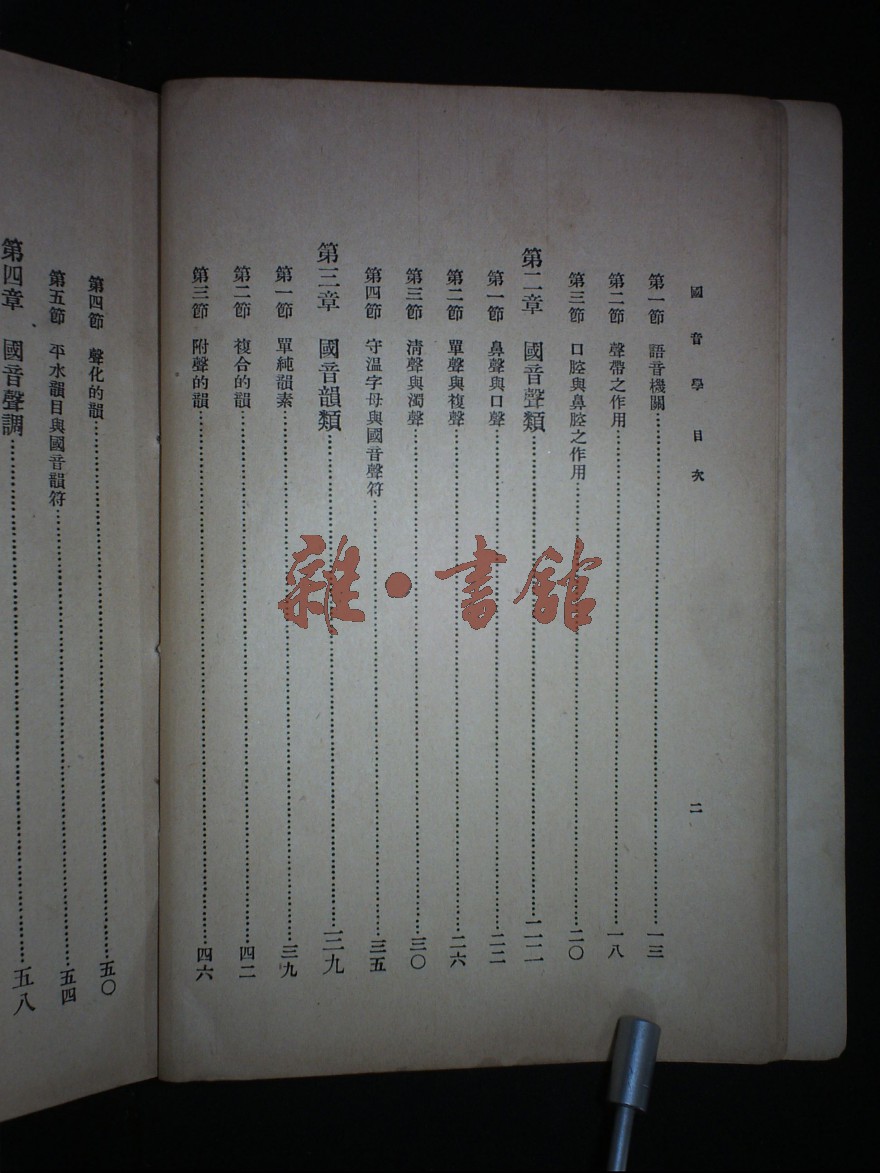 國音學 目次 二
第一節 語音機關……一三
第二節 聲帶之作用……一八
第三節 口腔與鼻腔之作用……二〇
第二章 國音聲類……二二
第一節 鼻聲與口聲……二二
第二節 單聲與複聲……二六
第三節 清聲與濁聲……三〇
第四節 守溫字母與國音聲符……三五
第三章 國音韻類……三九
第一節 單純韻素……三九
第二節 複合的韻……四二
第三節 附聲的韻……四六
第四節 聲化的韻……五〇
第五節 平水韻目與國音韻符……五四
第四章 國音聲調……五八
雜·書館